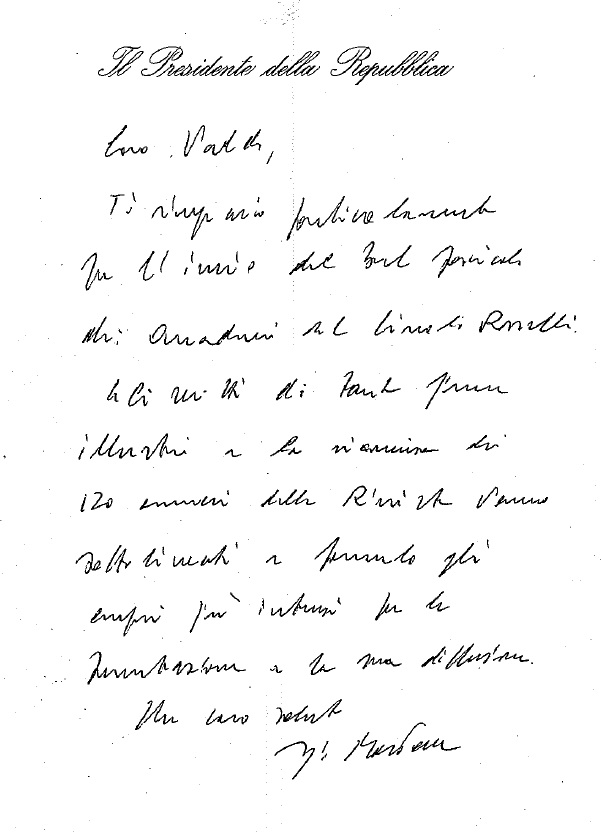 Il Presidente della Repubblica
Caro Valdo,
Ti ringrazio particolarmente
per l'invio del
dei Quaderni del Circolo Rosselli.
Gli scritti di tante firme
illustri e la riunione dei
120 numeri della Rivista vanno
sottolineati e formulo gli
auguri più intensi per la
e la sua diffusione.
Un caro saluto